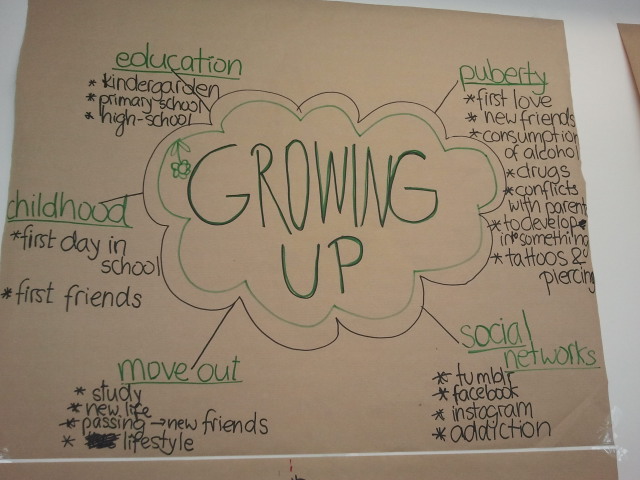 education
* kindergarden
* primary-school
* high-school
puberty
* first love
* new friends
* consumption
of alcohol
* drugs
* conflicts
with parent
* to develope
in something
* tattoos &
piercing
GROWING
UP
childhood
* first day in
school
* first friends
move out
* study
* new life
* passing → new friends
* lifestyle
social
networks
* tumblr
* facebook
* instagram
* addiction